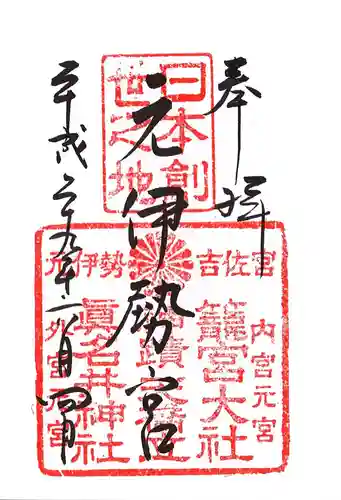 奉拝
日本創
世之地
元伊勢宮
吉佐宮
元伊勢
内宮元宮
籠宮大社
眞名井神社
外宮元宮
平成二十九年六月四日